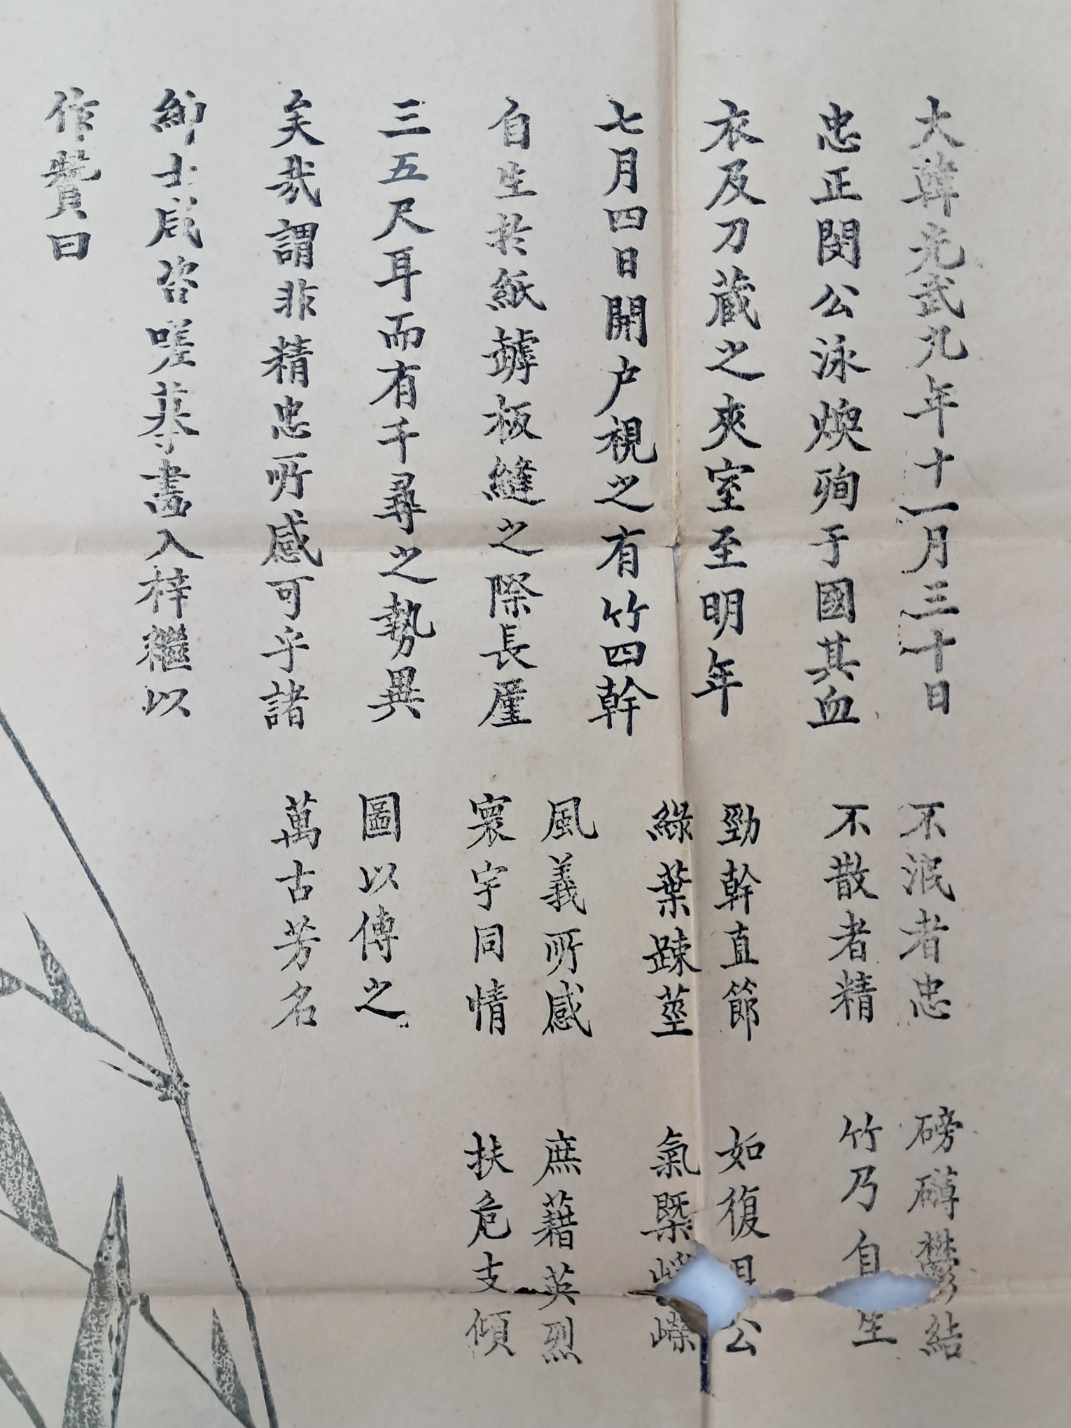 大韓光武九年十一月三十日
忠正閔公泳煥殉于國其血
衣及刀藏之夾室至明年
七月四日開户視之有竹四幹
自生於紙罅板縫之際長厪
三五尺耳而有千尋之勢異
矣哉謂非精忠所感可乎諸
紳士咸咨嗟摹畵入梓繼以
作贊曰
不泯者忠
不散者精
磅礴欝結
竹乃自生
勁幹直節
綠葉踈莖
如復公
氣槩嶸
風義所感
寰宇同情
庶藉英烈
扶危支傾
圖以傳之
萬古芳名